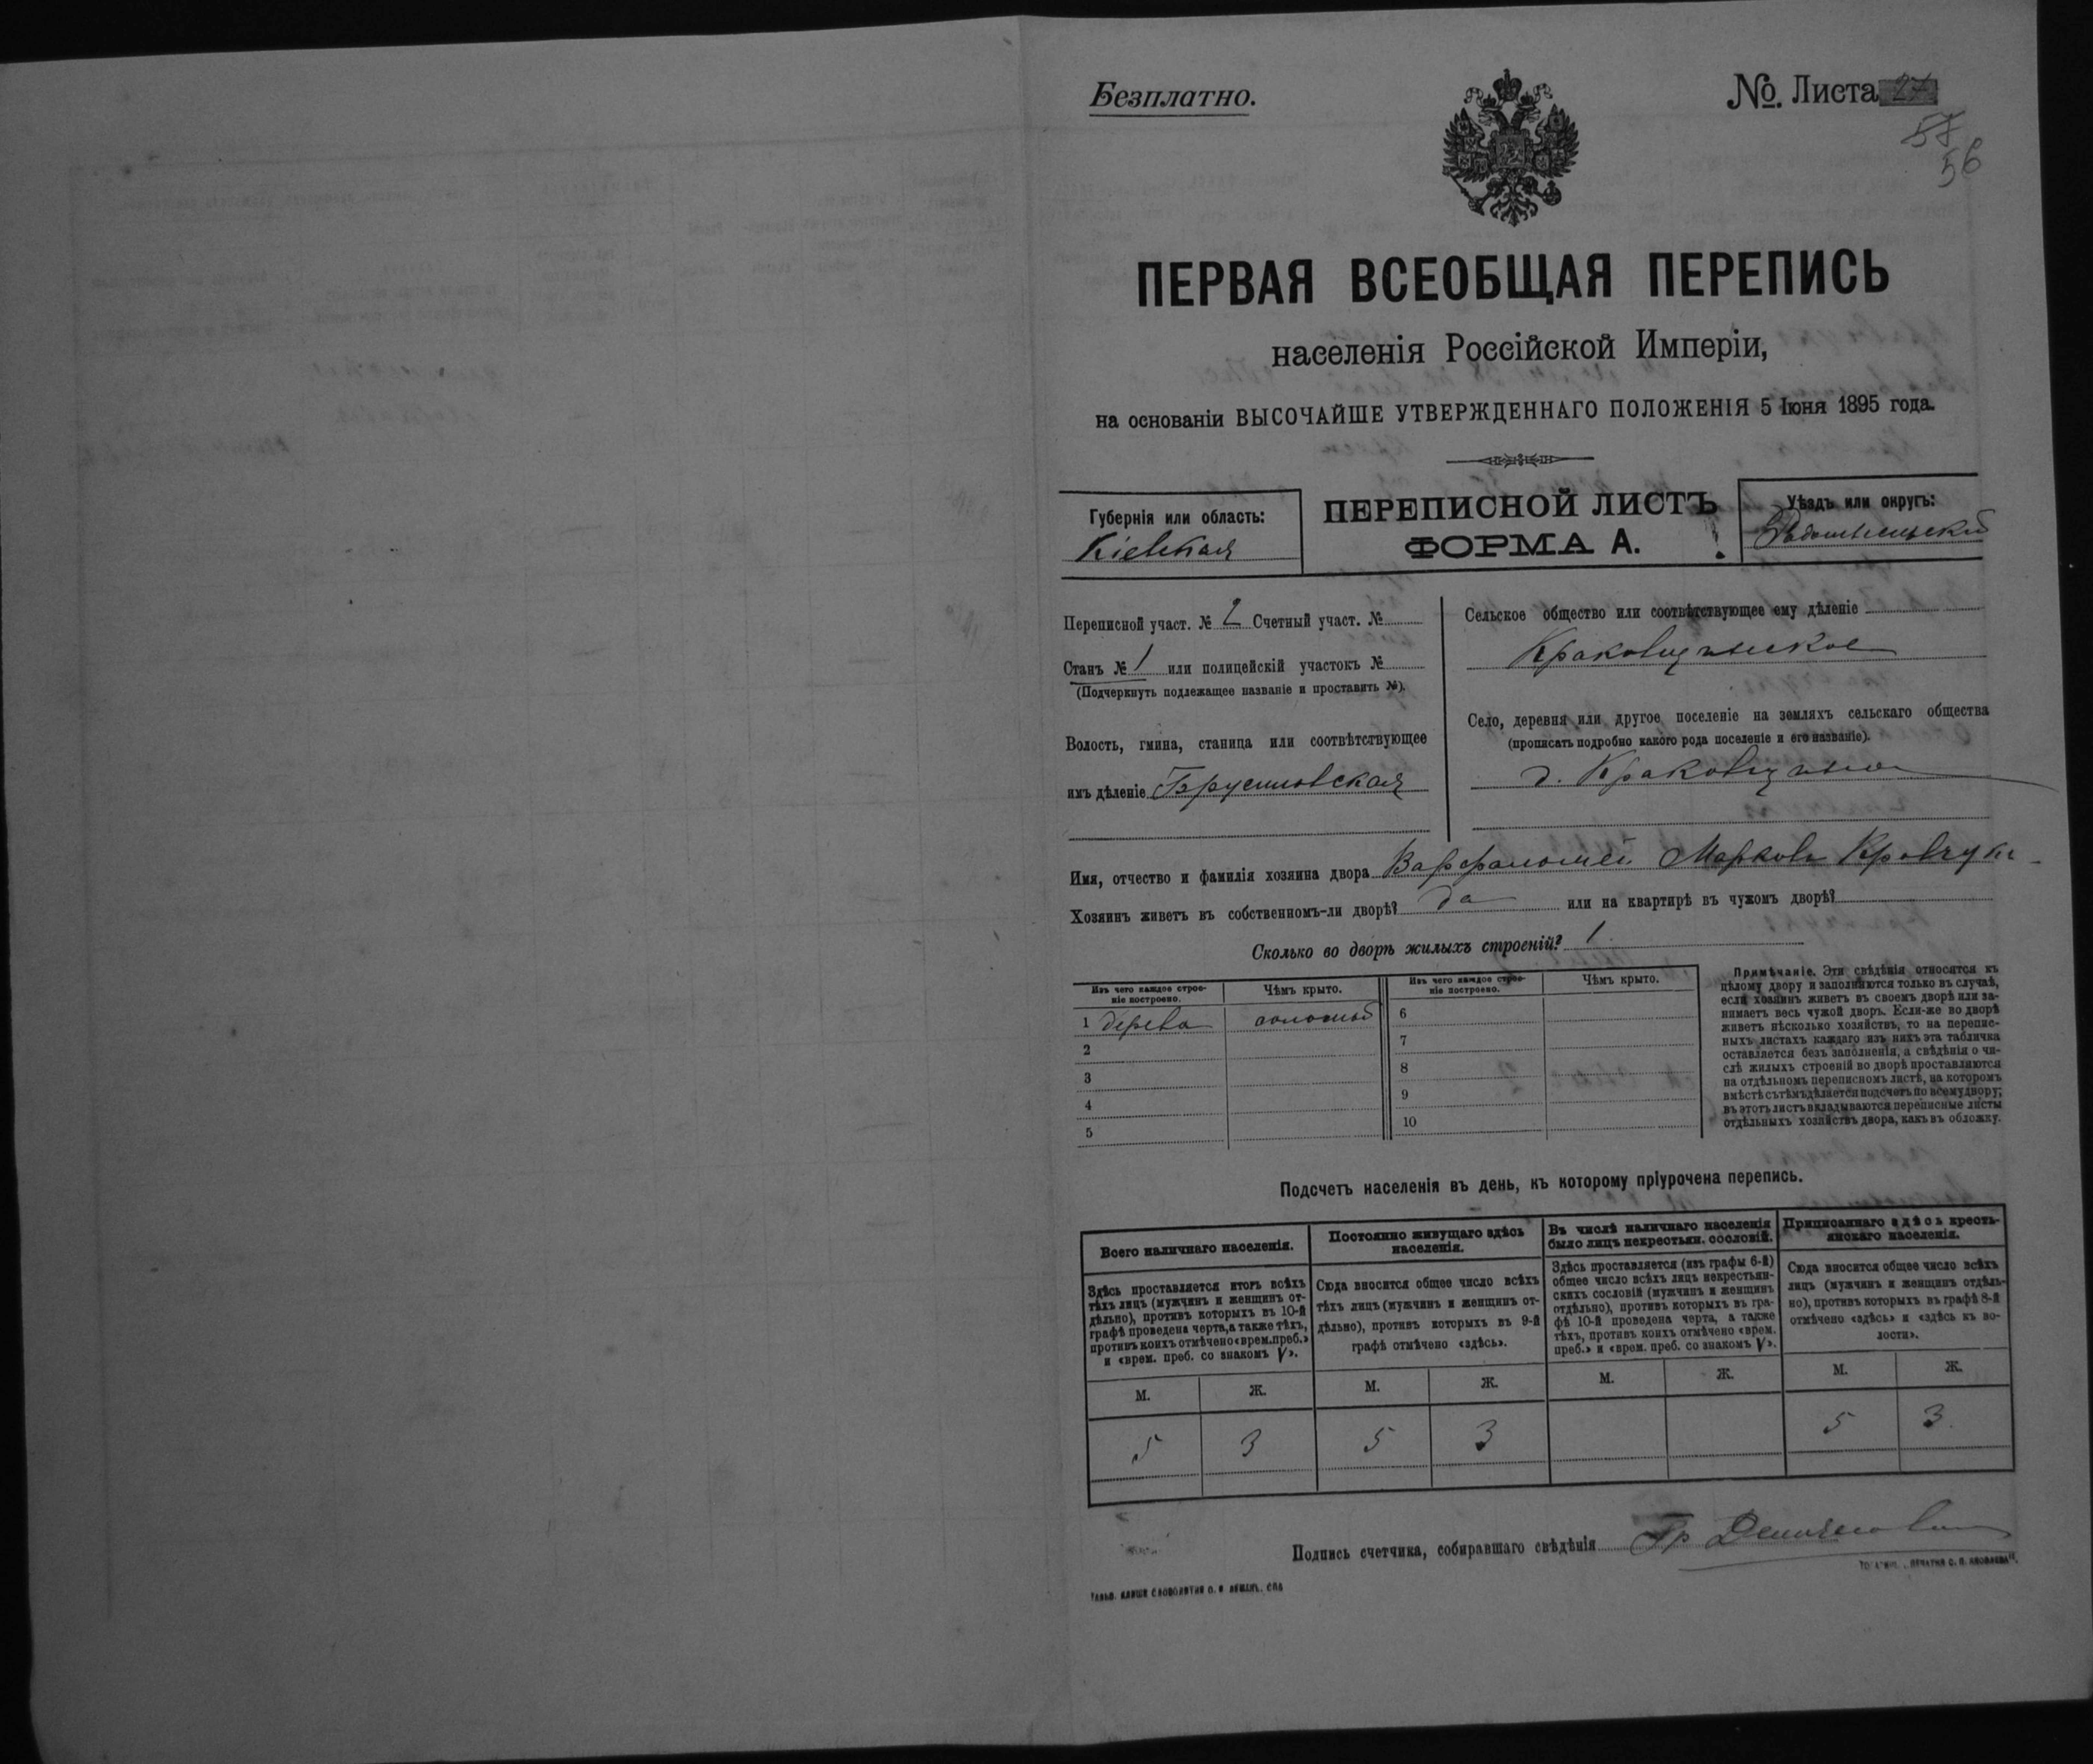 Безплатно.
№. Листа 27
57
56
ПЕРВАЯ ВСЕОБЩАЯ ПЕРЕПИСЬ
населенія Россійской Имперіи,
на основаніи ВЫСОЧАЙШЕ УТВЕРЖДЕННАГО ПОЛОЖЕНІЯ 5 Іюня 1895 года.
Губернія или область:
Кіевская
ПЕРЕПИСНОЙ ЛИСТЪ
ФОРМА А.
Уѣздъ или округъ:
Радомысльскій
Переписной участ. № 2 Счетный участ. №
Станъ № 1 или полицейскій участокъ №
(Подчеркнуть подлежащее названіе и проставить №).
Волость, гмина, станица или соотвѣтствующее
имъ дѣленіе Брусиловская
Сельское общество или соотвѣтствующее ему дѣленіе
Краковщинское
Село, деревня или другое поселеніе на земляхъ сельскаго общества
(прописать подробно какого рода поселеніе и его названіе).
д. Краковщина
Имя, отчество и фамилія хозяина двора Варфоломей Марковъ Кравчукъ
Хозяинъ живетъ въ собственномъ-ли дворѣ? да или на квартирѣ въ чужомъ дворѣ?
Сколько во дворѣ жилыхъ строеній? 1
Изъ чего каждое строе-
ніе построено.
Чѣмъ крыто.
Изъ чего каждое строе-
ніе построено.
Чѣмъ крыто.
1 дерева соломой
2
3
4
5
6
7
8
9
10
Примѣчаніе. Эти свѣдѣнія относятся къ
цѣлому двору и заполняются только въ случаѣ,
если хозяинъ живетъ въ своемъ дворѣ или за-
нимаетъ весь чужой дворъ. Если-же во дворѣ
живетъ нѣсколько хозяйствъ, то на перепис-
ныхъ листахъ каждаго изъ нихъ эта табличка
оставляется безъ заполненія, а свѣдѣнія о чи-
слѣ жилыхъ строеній во дворѣ проставляются
на отдѣльномъ переписномъ листѣ, на которомъ
вмѣстѣ съ тѣмъ дѣлается подсчетъ по всему двору;
въ этотъ листъ вкладываются переписные листы
отдѣльныхъ хозяйствъ двора, какъ въ обложку.
Подсчетъ населенія въ день, къ которому пріурочена перепись.
Всего наличнаго населенія.
Здѣсь проставляется итогъ всѣхъ
тѣхъ лицъ (мужчинъ и женщинъ от-
дѣльно), противъ которыхъ въ 10-й
графѣ проведена черта, а также тѣхъ,
противъ коихъ отмѣчено «врем. преб.»
и «врем. преб. со знакомъ V».
М. Ж.
5 3
Постоянно живущаго здѣсь
населенія.
Сюда вносится общее число всѣхъ
тѣхъ лицъ (мужчинъ и женщинъ от-
дѣльно), противъ которыхъ въ 9-й
графѣ отмѣчено «здѣсь».
М. Ж.
5 3
Въ числѣ наличнаго населенія
было лицъ некрестьян. сословій.
Здѣсь проставляется (изъ графы 6-й)
общее число всѣхъ лицъ некрестьян-
скихъ сословій (мужчинъ и женщинъ
отдѣльно), противъ которыхъ въ гра-
фѣ 10-й проведена черта, а также
тѣхъ, противъ коихъ отмѣчено «врем.
преб.» и «врем. преб. со знакомъ V».
М. Ж.
Приписаннаго здѣсь кресть-
янскаго населенія.
Сюда вносится общее число всѣхъ
лицъ (мужчинъ и женщинъ отдѣль-
но), противъ которыхъ въ графѣ 8-й
отмѣчено «здѣсь» и «здѣсь къ во-
лости».
М. Ж.
5 3
Подпись счетчика, собиравшаго свѣдѣнія Гр